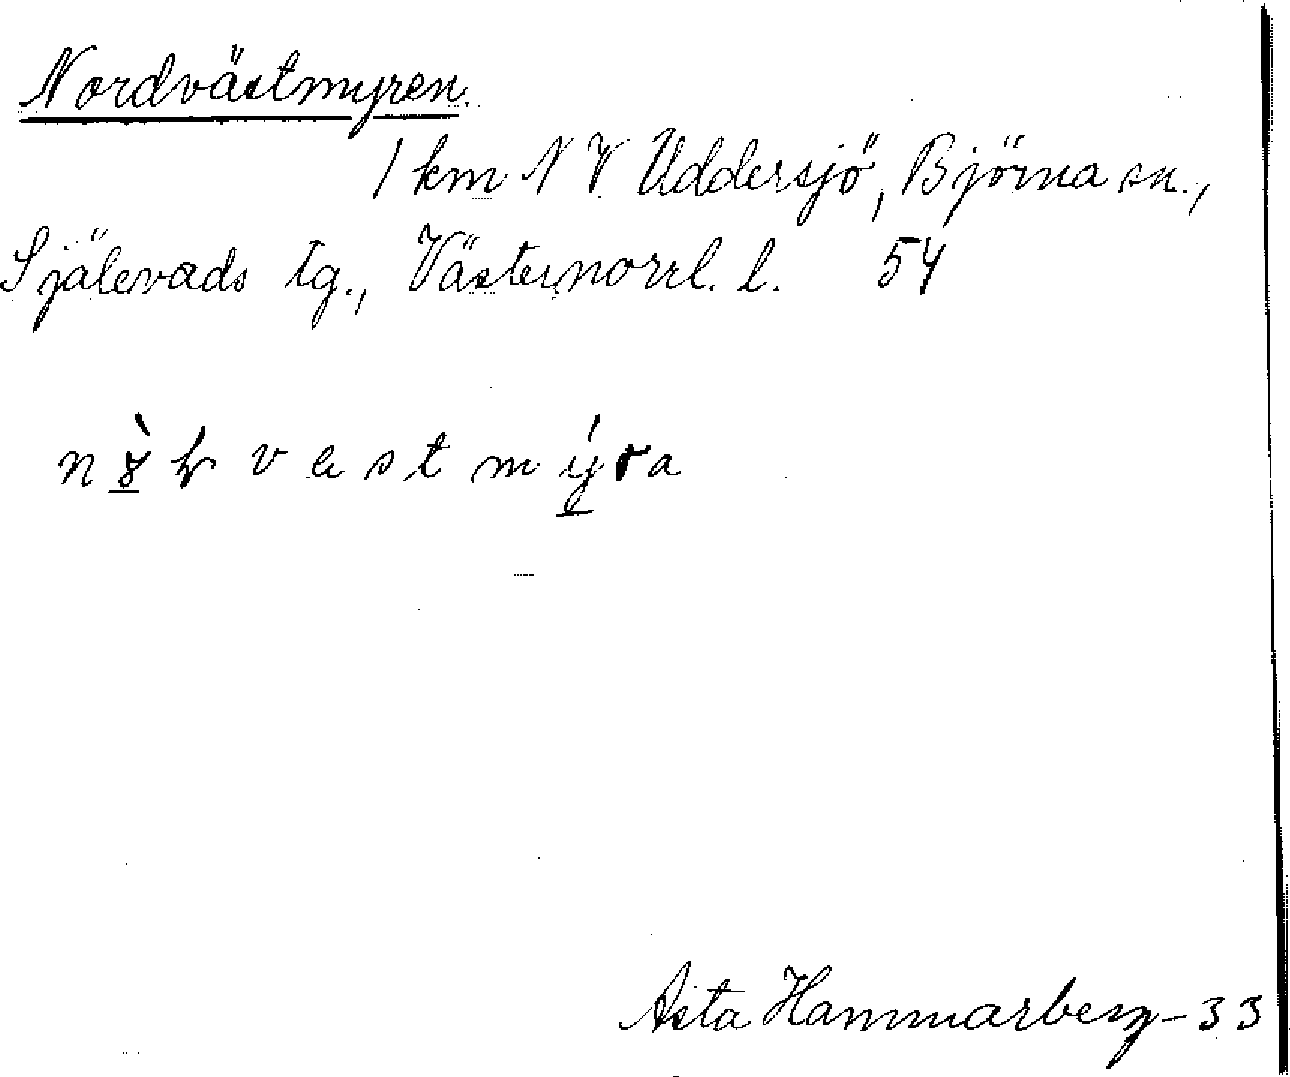 Nordvästmyren.
1 km N V Uddersjö, Björna sn.,
Själevads tg., Västernorrl. l. 54
vestmýra
Asta Hammarberg - 33